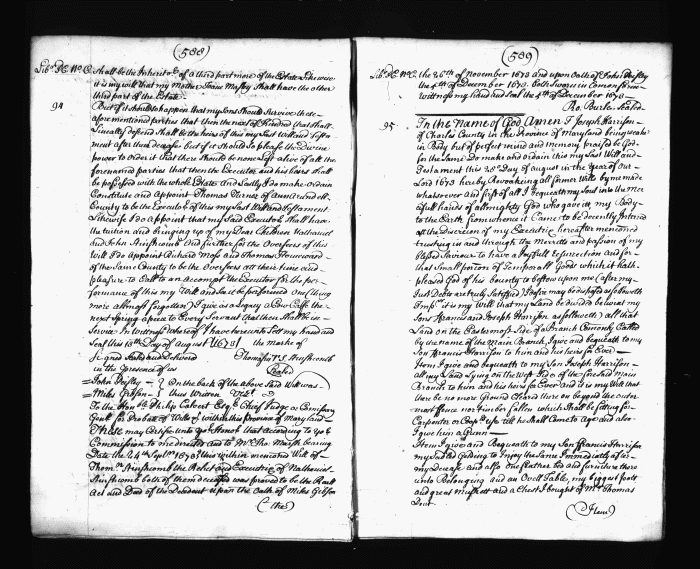 (588)
shall be the Inherito.rs of a third part more of the Estate Likewise
it is my will that my Mother Jsaue Massey shall have the other
third part of the Estate
94
But if it should so happen that my Sons should survive these
afore mentioned parties that then the next of Kindred that shall
Lineally Descend shall be the heirs of this my Last Will and Testa
ment after their decease but if it should so please the Divine
power to order it that there should be none Left alive of all the
forenamed parties then the Executor and his heirs shall
be possessed with the whole Estate And Lastly I do make ordain
Constitute and appoint Thomas of Annarundell
County to be the Executor of this my Last Will and Testament
Likewise I do appoint that my said Executor shall have
the tuition and bringing up of my Dear Children Nathaniel
and John And further for the Overseers of this
Will I do appoint Richard Moss and Thomas
of the Same County to be the Overseers att their hours and
pleasure to Call to an accompt the Executor for the per-
formance of this my Will and to see it performed one thing
more almost forgotten I give as a Legacy a Cow Calfe the
next Spring apiece to Every Servant that then shall be in
Service In Witness whereof I have hereunto Set my hand and
Seal this 18th Day of august 1673 the marke of
Signed Sealed and Deliverd Thomas T S
in the presence of us Sealed
John Peisley On the back of the above said Will was
Miles Gibson thus Written Viz.t
To the Hon.ble Philip Calvert Esq.r Chief Judge or Comissary
Genll for Probate of Wills within this Province of Maryland
These may Certifie unto Yo.r Hono.r that according to yo.r
Commission to one directed and to Mr Tho. Marsh bearing
Date the 24th Sept.r 1673 the within mentioned Will of
Thom.s the Relict and Executrix of Nathaniel
both of them deceased was proved to be the Reall
Act and Deed of the Deceadent upon the Oath of Miles Gibson
(the)
(589)
the 26th of November 1673 And upon Oath of John Peisley
the 4th of December 1673 both Sworne in Comon forme
witness my hand and Seal the 4th of December 1673
Ro. Burle Seald
95
In the Name of God Amen I Joseph Harrison
of Charles County in the Province of Maryland being weake
in Body but of perfect mind and memory praised be God
for the Same Do make and ordain this my Last Will and
Testament this 28th Day of august in the year of our
Lord 1673 hereby Revoaking all former Wills by me made
whatsoever and first of all I bequeath my Soul into the Mer
cifull hands of allmighty God who gave it my Body
to the Earth from whence it Came to be decently Interred
att the Discretion of my Executrix hereafter mentioned
trusting in and through the Merretts and passion of my
blessed Saviour to have a Joyfull Resurrection and for
that Small portion of Temporall Goods which it hath
pleased God of his bounty to bestow upon me (after my
Just Debts are truly Satisfied) I desire may be disposed as followeth
Imp.s it is my Will that my Land be divided betwixt my
Sons Francis and Joseph Harrison as followeth) all that
Land on the Eastermost Side of a Branch Comonly Called
by the name of the Main Branch, I give and bequeath to my
Son Francis Harrison to him and his heirs for Ever
Item I give and bequeath to my Son Joseph Harrison
all my Land Lying on the West Side of the foresaid Main
Branch to him and his heirs for Ever and it is my Will that
there be no more Ground Cleard there on beyond the outer
most fence nor timber fallen which shall be fitting for
Carpenter or Coop.r use till he shall Come to Age and also
I give him a Gunn
Item I give and Bequeath to my Son Francis Harrison
my Land to Enjoy the Same Immediately after
my Decease and also one feather bed and furniture there
unto Belonging and an Ovell Table, my biggest pott
and great muskett and a Chest I bought of Mr. Thomas
Dent
(Item)